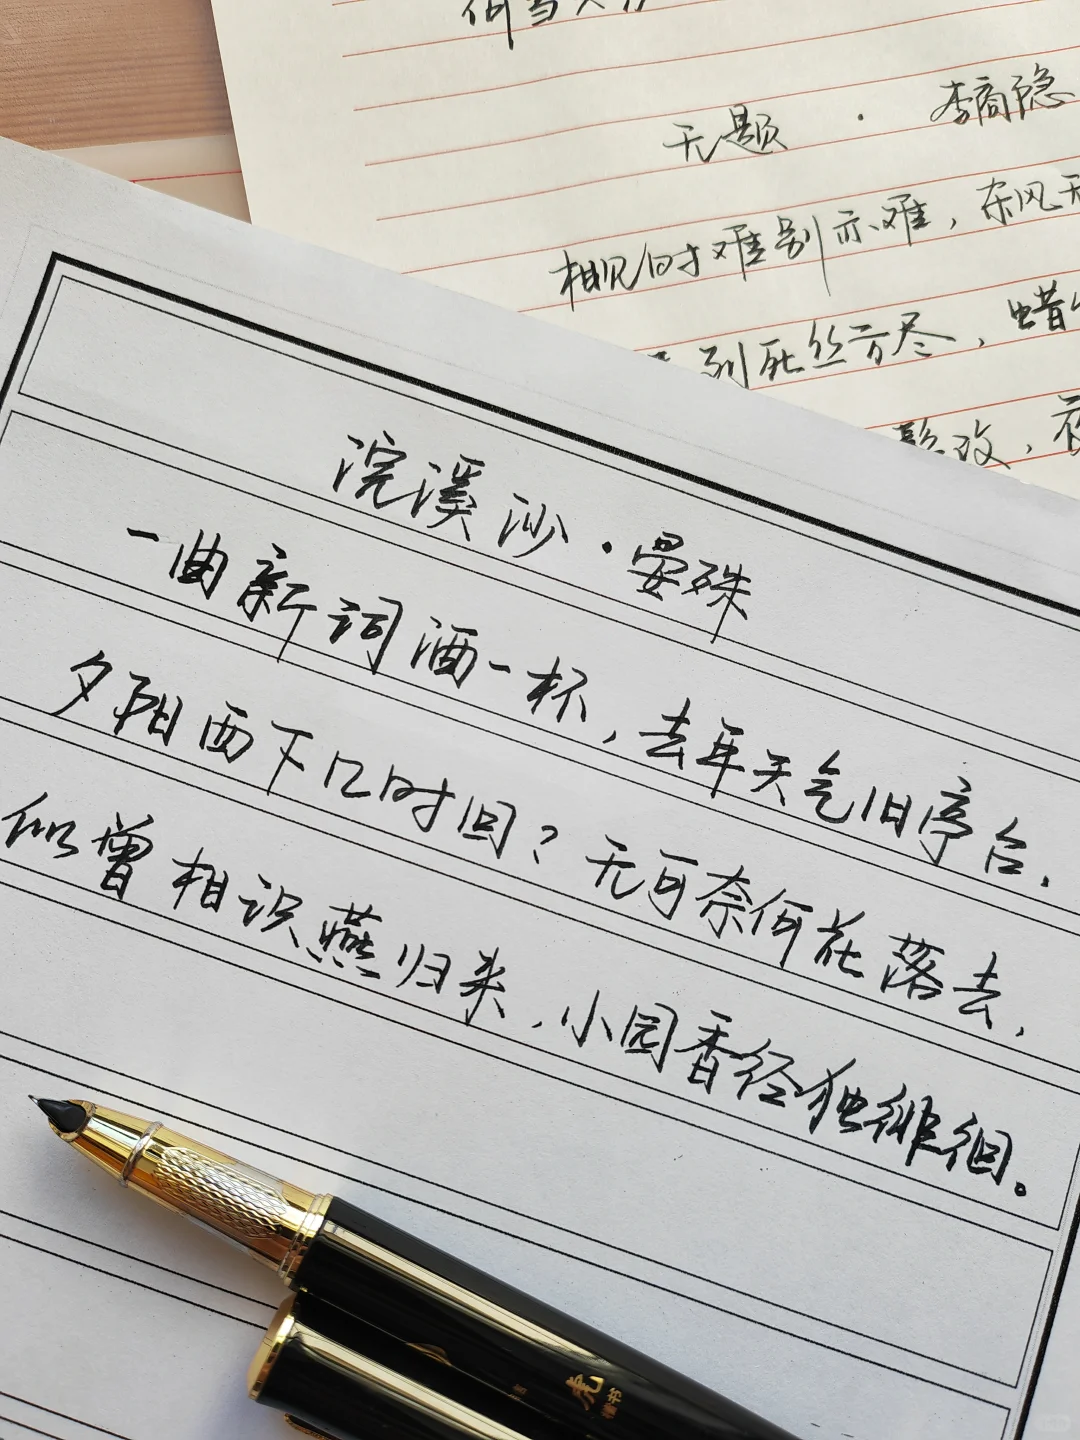 无题 · 李商隐
相见时难别亦难，东风无
到死丝方尽，蜡
鬓改，夜
浣溪沙·晏殊
一曲新词酒一杯，去年天气旧亭台.
夕阳西下几时回？无可奈何花落去，
似曾相识燕归来，小园香径独徘徊。
虎